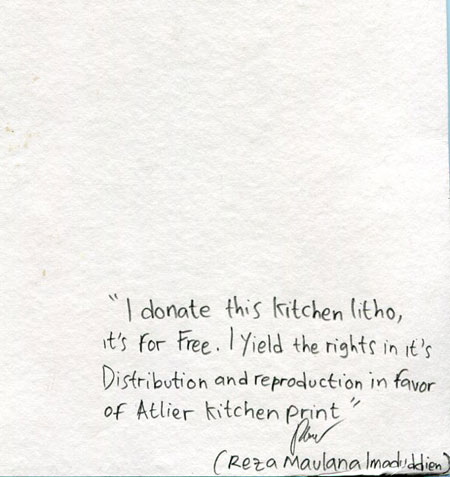 "I donate this kitchen litho,
it's for Free. I Yield the rights in it's
Distribution and reproduction in favor
of Atlier kitchen print"
(Reza Maulana Imaduddien)